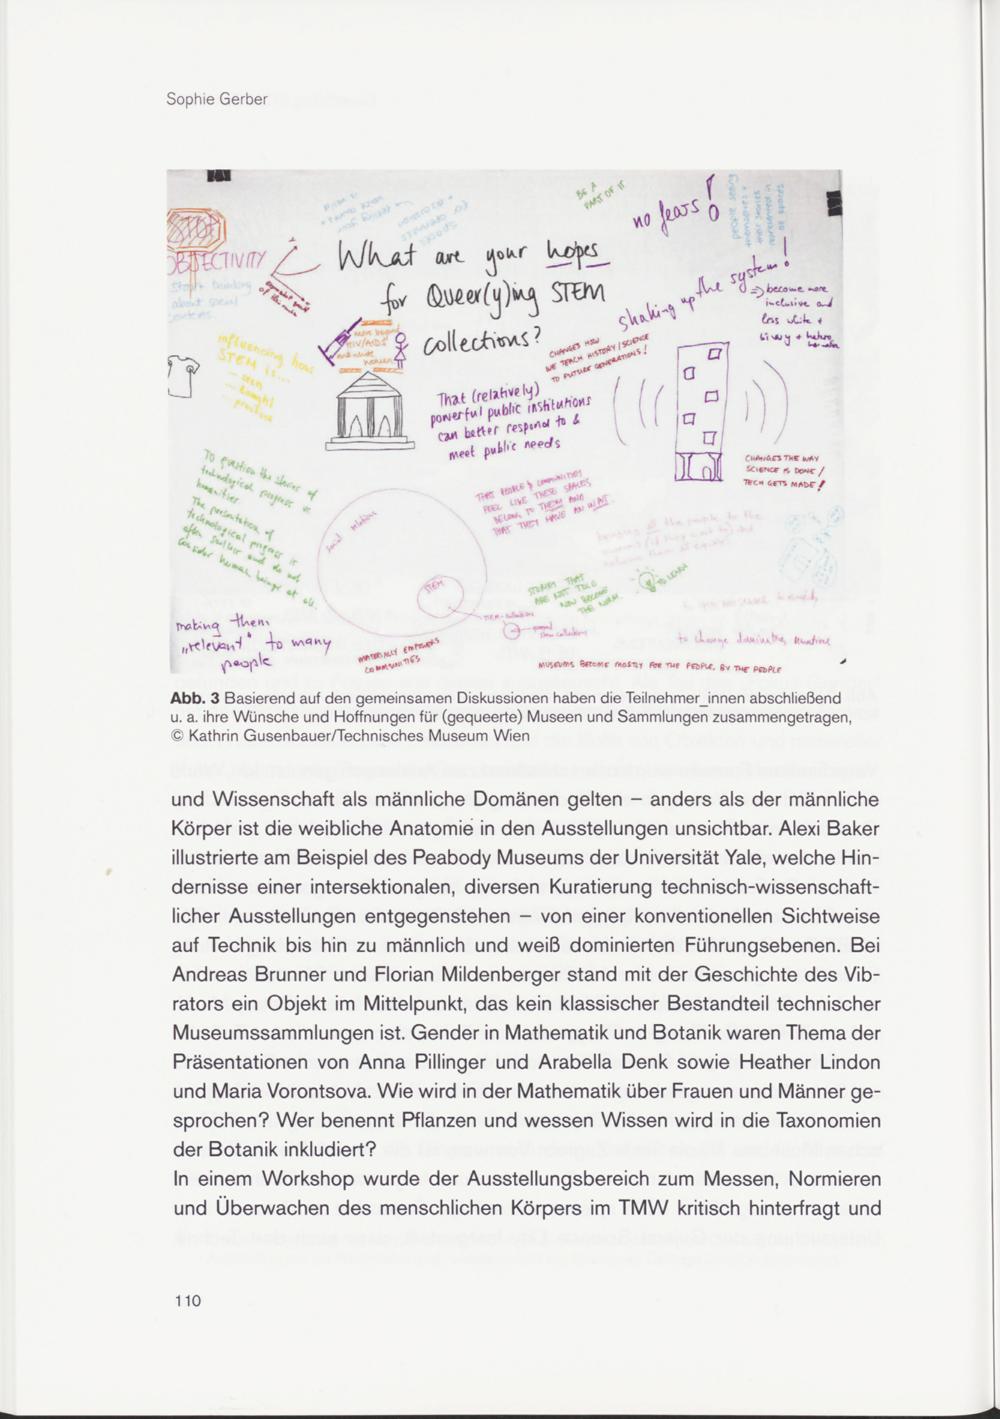 Sophie Gerber
BE A
PART OF IT
no fears!
people seeing
themselves +
their stories
represented in
STOP
OBJECTIVITY
Start thinking
about social
What are your hopes
for Queer(y)ing STEM
collections?
shaking up the system!
=> become more
inclusive and
less white +
influencing how
STEM is...
- seen
- taught
- practiced
more beyond
HIV/AIDS
CHANGES HOW
WE TEACH HISTORY/SCIENCE
TO FUTURE GENERATIONS!
That (relatively)
powerful public institutions
can better respond to &
meet public needs
CHANGES THE WAY
SCIENCE IS DONE/
TECH GETS MADE!
To question the stories of
technological progress vs
humanities
The presentation of
technological progress is
often soulless and do not
consider human beings at all.
THAT PEOPLE & COMMUNITIES
FEEL LIKE THESE SPACES
BELONG TO THEM AND
THAT THEY HAVE AN IN PUT.
social relations
STEM
STORIES THAT
ARE NOT TOLD
NOW BECOME
THE NORM.
TO LEARN
making them
„relevant“ to many
people
MATERIALLY EMPOWERS
COMMUNITIES
to change dominating narrative
MUSEUMS BECOME MOSTLY FOR THE PEOPLE, BY THE PEOPLE
Abb. 3 Basierend auf den gemeinsamen Diskussionen haben die Teilnehmer_innen abschließend
u. a. ihre Wünsche und Hoffnungen für (gequeerte) Museen und Sammlungen zusammengetragen,
© Kathrin Gusenbauer/Technisches Museum Wien
und Wissenschaft als männliche Domänen gelten – anders als der männliche
Körper ist die weibliche Anatomie in den Ausstellungen unsichtbar. Alexi Baker
illustrierte am Beispiel des Peabody Museums der Universität Yale, welche Hin-
dernisse einer intersektionalen, diversen Kuratierung technisch-wissenschaft-
licher Ausstellungen entgegenstehen – von einer konventionellen Sichtweise
auf Technik bis hin zu männlich und weiß dominierten Führungsebenen. Bei
Andreas Brunner und Florian Mildenberger stand mit der Geschichte des Vib-
rators ein Objekt im Mittelpunkt, das kein klassischer Bestandteil technischer
Museumssammlungen ist. Gender in Mathematik und Botanik waren Thema der
Präsentationen von Anna Pillinger und Arabella Denk sowie Heather Lindon
und Maria Vorontsova. Wie wird in der Mathematik über Frauen und Männer ge-
sprochen? Wer benennt Pflanzen und wessen Wissen wird in die Taxonomien
der Botanik inkludiert?
In einem Workshop wurde der Ausstellungsbereich zum Messen, Normieren
und Überwachen des menschlichen Körpers im TMW kritisch hinterfragt und
110